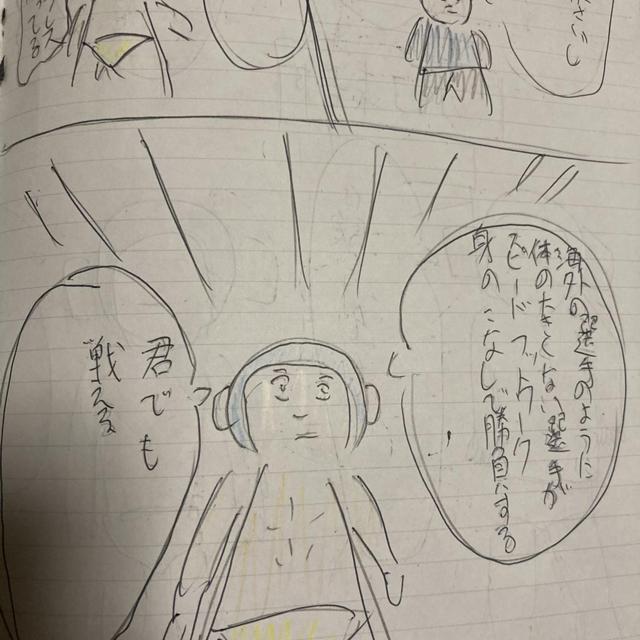 さいし
海外の選手のように
体の大きくない選手が
スピード フットワーク
身のこなしで勝負する
君でも
戦える